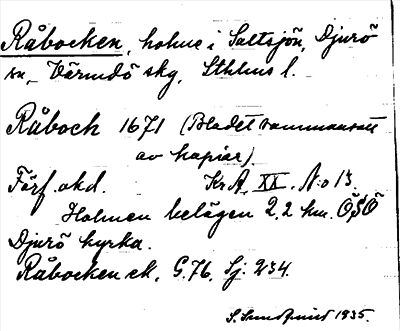 Råbocken, holme i Saltsjön, Djurö
sn, Värmdö skg, Sthlms l.
Råboch 1671 (Bladet sammansatt
av kopior).
Förf. okd. KrA, XX, No 13.
Holmen belägen 2,2 km. ÖSÖ
Djurö kyrka.
Råbocken ek. G.76. Sj: 234.
S. Sundquist 1935.